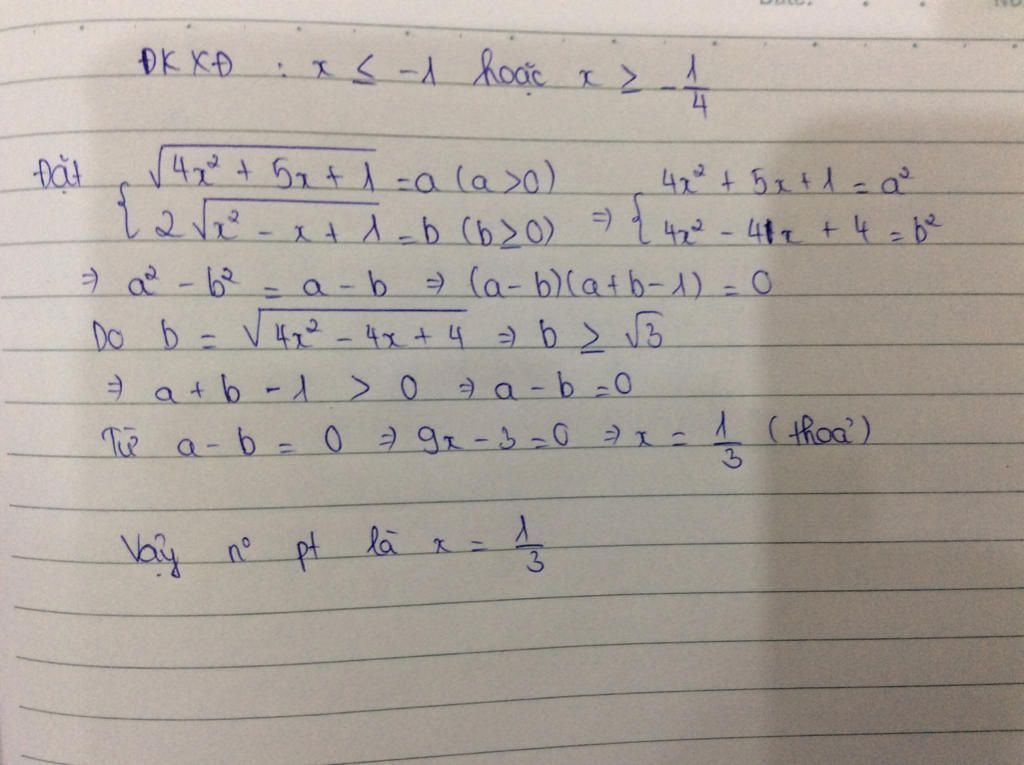 Date:
No
ĐKXĐ : x ≤ -1 hoặc x ≥ -1/4
Đặt { √(4x² + 5x + 1) = a (a > 0) ⇒ { 4x² + 5x + 1 = a²
2√(x² - x + 1) = b (b ≥ 0) 4x² - 4x + 4 = b²
⇒ a² - b² = a - b ⇒ (a-b)(a+b-1) = 0
Do b = √(4x² - 4x + 4) ⇒ b ≥ √3
⇒ a + b - 1 > 0 ⇒ a - b = 0
Từ a - b = 0 ⇒ 9x - 3 = 0 ⇒ x = 1/3 (thoả)
Vậy n° pt là x = 1/3